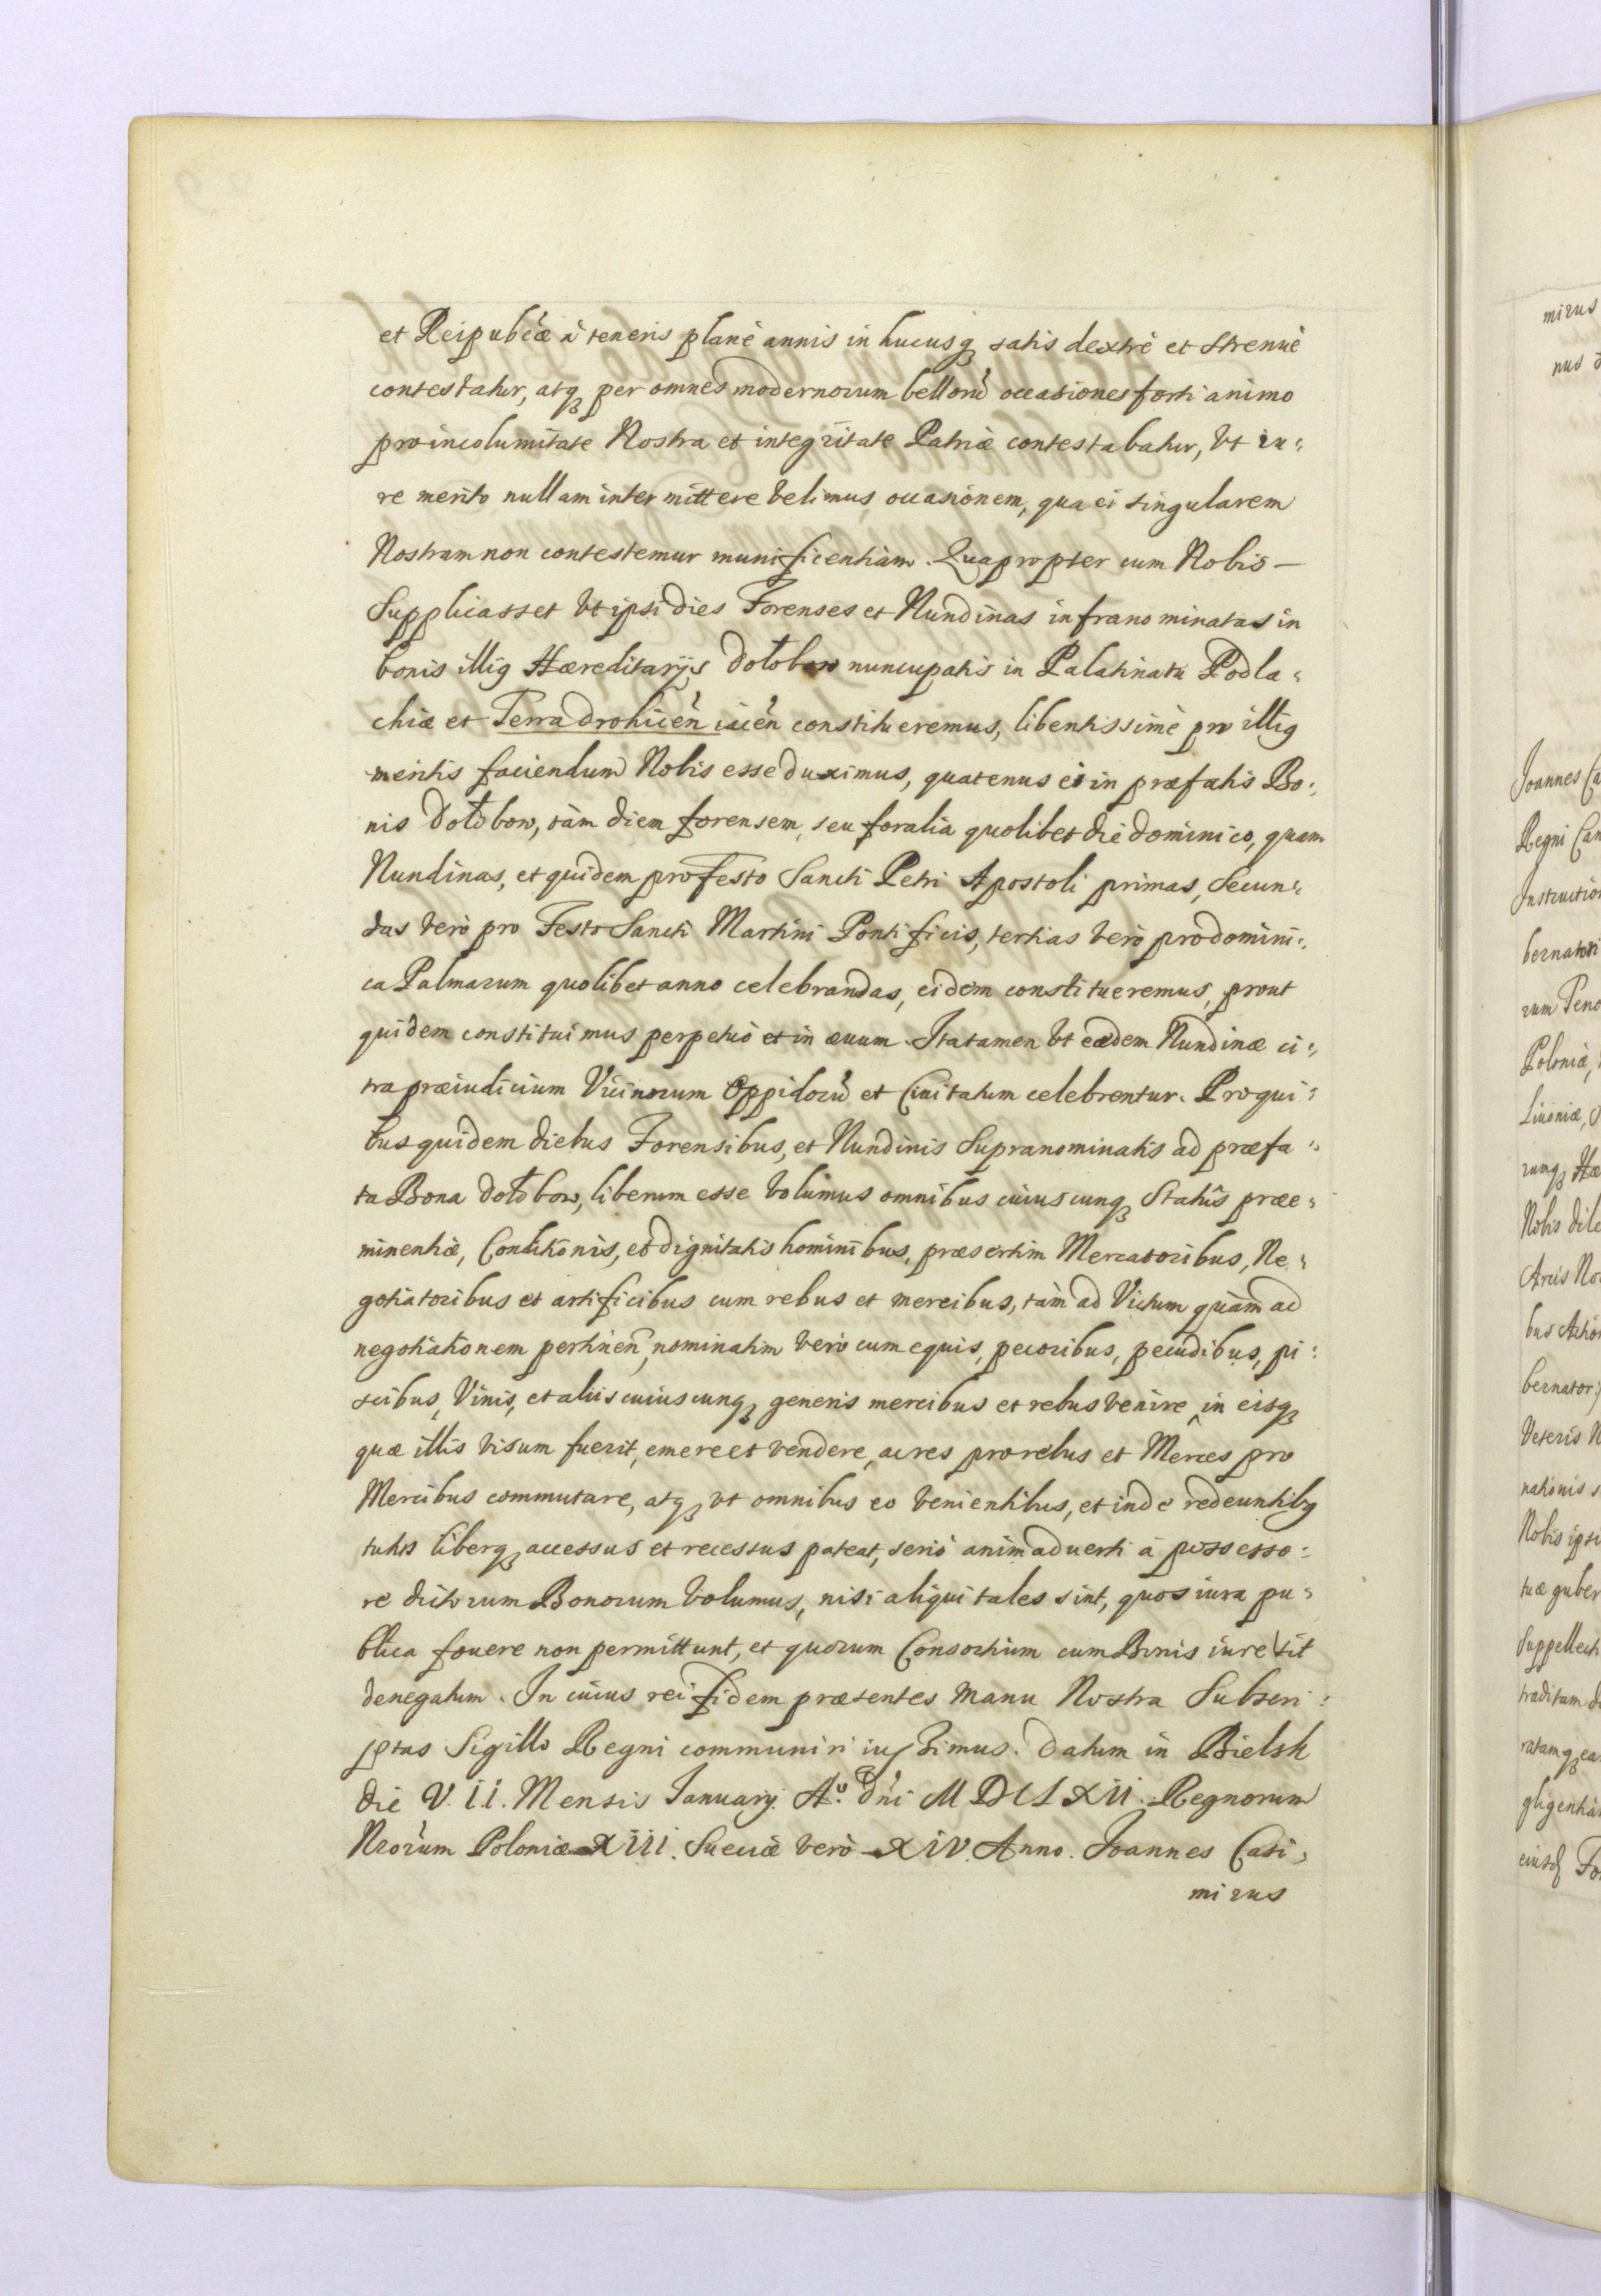 et Reipublcæ à teneris planè annis in hucusq satis dextrè et strenuè
contestatur, atq per omnes modernorum bellorũ occasiones forti animo
pro incolumitate Nostra et integritate Patriæ contestabatur, Vt iu:
re merito nullam intermittere Velimus occasionem, qua ei singularem
Nostram non contestemur munificentiam. Quapropter cum Nobis —
Supplicasset Vt ipsi dies Forenses et Nundinas infranominatas in
bonis illig Hæreditarijs Dołobow nuncupatis in Palatinatu Podla:
chiæ et Terra Drohicen̄ iacen̄ constitueremus, libentissimè pro illig
meritis faciendum Nobis esse duximus, quatenus ei in præfatis Bo:
nis Dołobow, tàm diem forensem, seu foralia quolibet die Dominico, quam
Nundinas, et quidem pro Festo Sancti Petri Apostoli primas, Secun:
das Verò pro Festo Sancti Martini Pontificis, tertias Verò pro Domini:
ca Palmarum quolibet anno celebrandas, eidem constitueremus, prout
quidem constituimus perpetuò et in æuum. Ita tamen Vt eædem Nundinæ ci:
tra præiudicium Vicinorum Oppidorũ et Ciuitatum celebrentur. Pro qui:
bus quidem diebus Forensibus, et Nundinis Supranominatis ad præfa:
ta Bona Dołobow, liberum esse Volumus omnibus cuiuscunq Statûs præe:
minentiæ, Conditionis, et dignitatis hominibus, præsertim Mercatoribus, Ne:
gotiatoribus et artificibus cum rebus et mercibus, tàm ad Victum quàm ad
negotiationem pertinen̄, nominatim Verò cum equis, pecoribus, pecudibus, pi:
scibus, Vinis, et aliis cuiuscunq generis mercibus et rebus Venire, in eisq
quæ illis Visum fuerit, emere et Vendere, ac res pro rebus et Merces pro
Mercibus commutare, atq Vt omnibus eo Venientibus, et inde redeuntibq
tutus liberq accessus et recessus pateat, seriò animaduerti à possesso:
re dictorum Bonorum Volumus, nisi aliqui tales sint, quos iura pu:
blica fouere non permittunt, et quorum Consortium cum Bonis iure sit
denegatum. In cuius rei fidem præsentes manu Nostra Subscri:
ptas Sigillo Regni communiri iussimus. Datum in Bielsk
die V.II. Mensis Januarij Aº. Dn̄i MDCLXII. Regnorum
Nrorum Poloniæ XIII. Sueciæ Verò XIV. Anno. Joannes Casi:
mirus
mirus
nus
Joannes Ca
Regni Can
Instruction
bernatori
rum Teno
Poloniæ,
Liuoniæ, S
rumq Hæ
Nobis dile
Arcis No
bus Action
bernator:
Veteris N
nationis s
Nobis ipsi
tuæ guber
Suppellect
traditam d
ratamq ea
gligentia
eiusd Fo